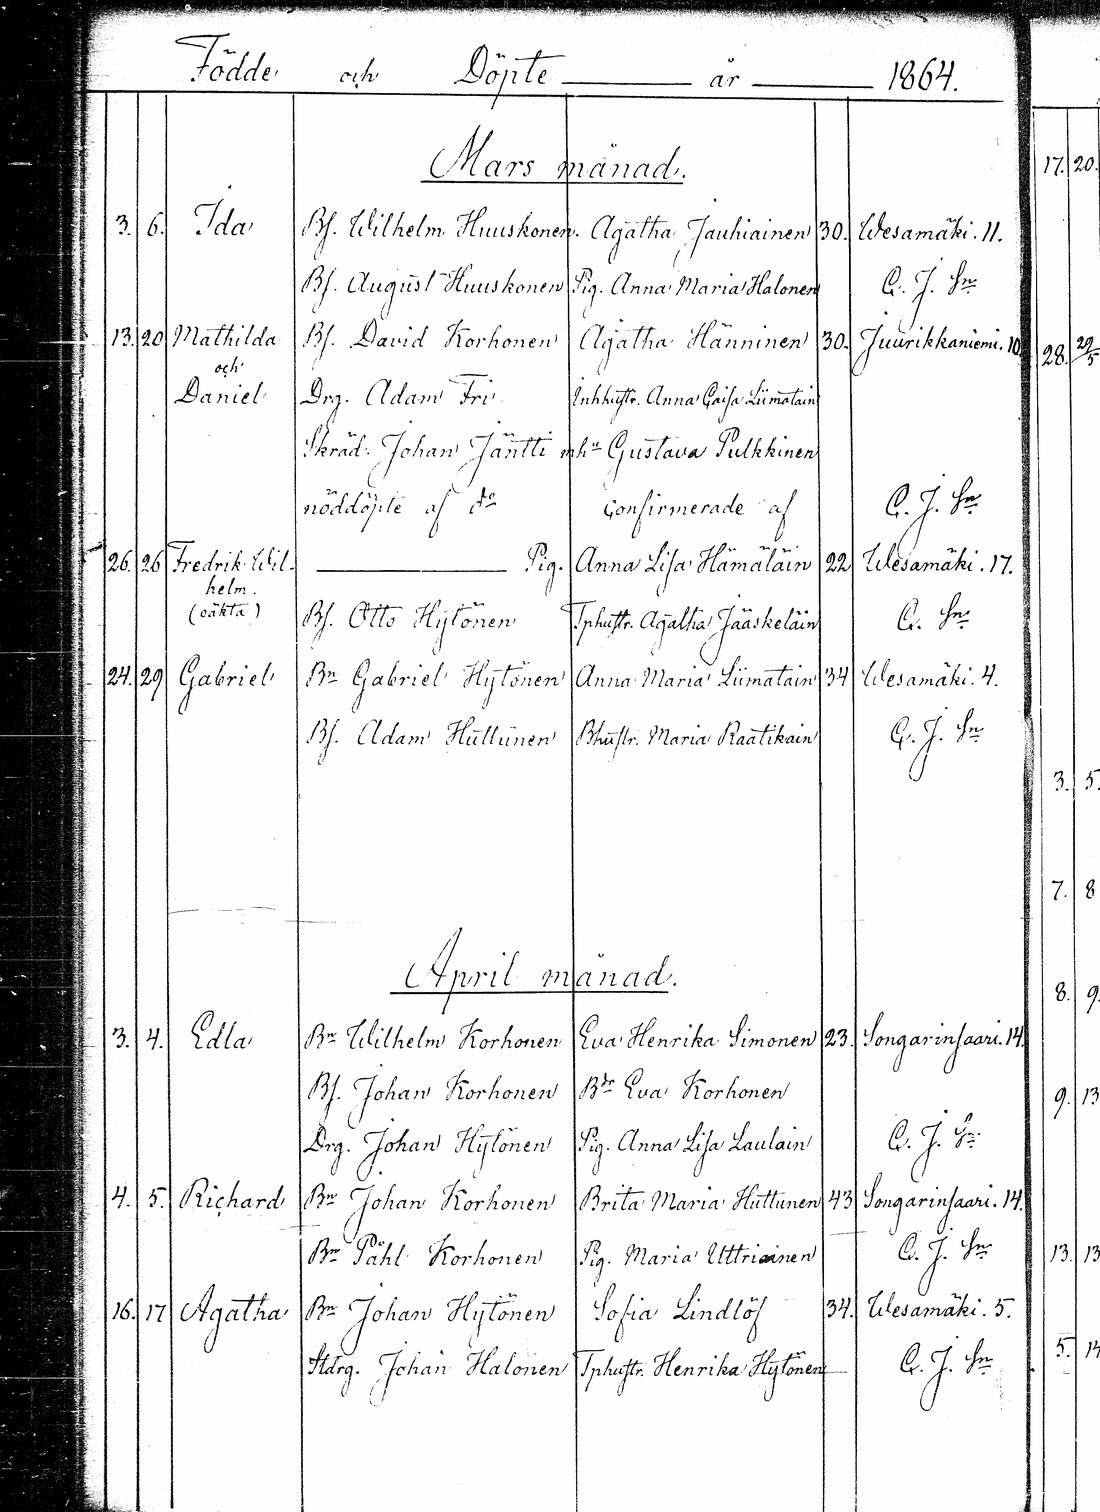 Födde och Döpte år 1864.
Mars månad.
3. 6. Ida Bf. Wilhelm Huuskonen. Agatha Jauhiainen 30. Wesamäki. 11.
Bf. August Huuskonen Pig. Anna Maria Halonen C. J. Sn
13. 20 Mathilda Bf. David Korhonen Agatha Hänninen 30. Juurikkaniemi. 10
och
Daniel Drg. Adam Fri Inhhustr. Anna Caisa Liimatain
Skräd. Johan Jäntti mhu Gustava Pulkkinen
nöddöpte af do Confirmerade af C. J. Sn
26. 26 Fredrik Wil- Pig. Anna Lisa Hämäläin 22 Wesamäki. 17.
helm.
(oäkta) Bf. Otto Hytönen Tphustr. Agatha Jääskeläin C. Sn
24. 29 Gabriel Bn Gabriel Hytönen Anna Maria Liimatain 34 Wesamäki. 4.
Bf. Adam Huttunen Bhustr. Maria Raatikain C. J. Sn
April månad.
3. 4. Edla Bn Wilhelm Korhonen Eva Henrika Simonen 23. Songarinsaari. 14.
Bf. Johan Korhonen Bdr Eva Korhonen
Drg. Johan Hytönen Pig. Anna Lisa Laulain C. J. Sn
4. 5. Richard Bn Johan Korhonen Brita Maria Huttunen 43 Songarinsaari. 14.
Bn Påhl Korhonen Pig. Maria Uttriainen C. J. Sn
16. 17 Agatha Bn Johan Hytönen Sofia Lindlöf 34. Wesamäki. 5.
Stdrg. Johan Halonen Tphustr. Henrika Hytönen C. J. Sn
17. 20.
28. 29/5
3. 5.
7. 8
8. 9.
9. 13
13. 13
5. 14